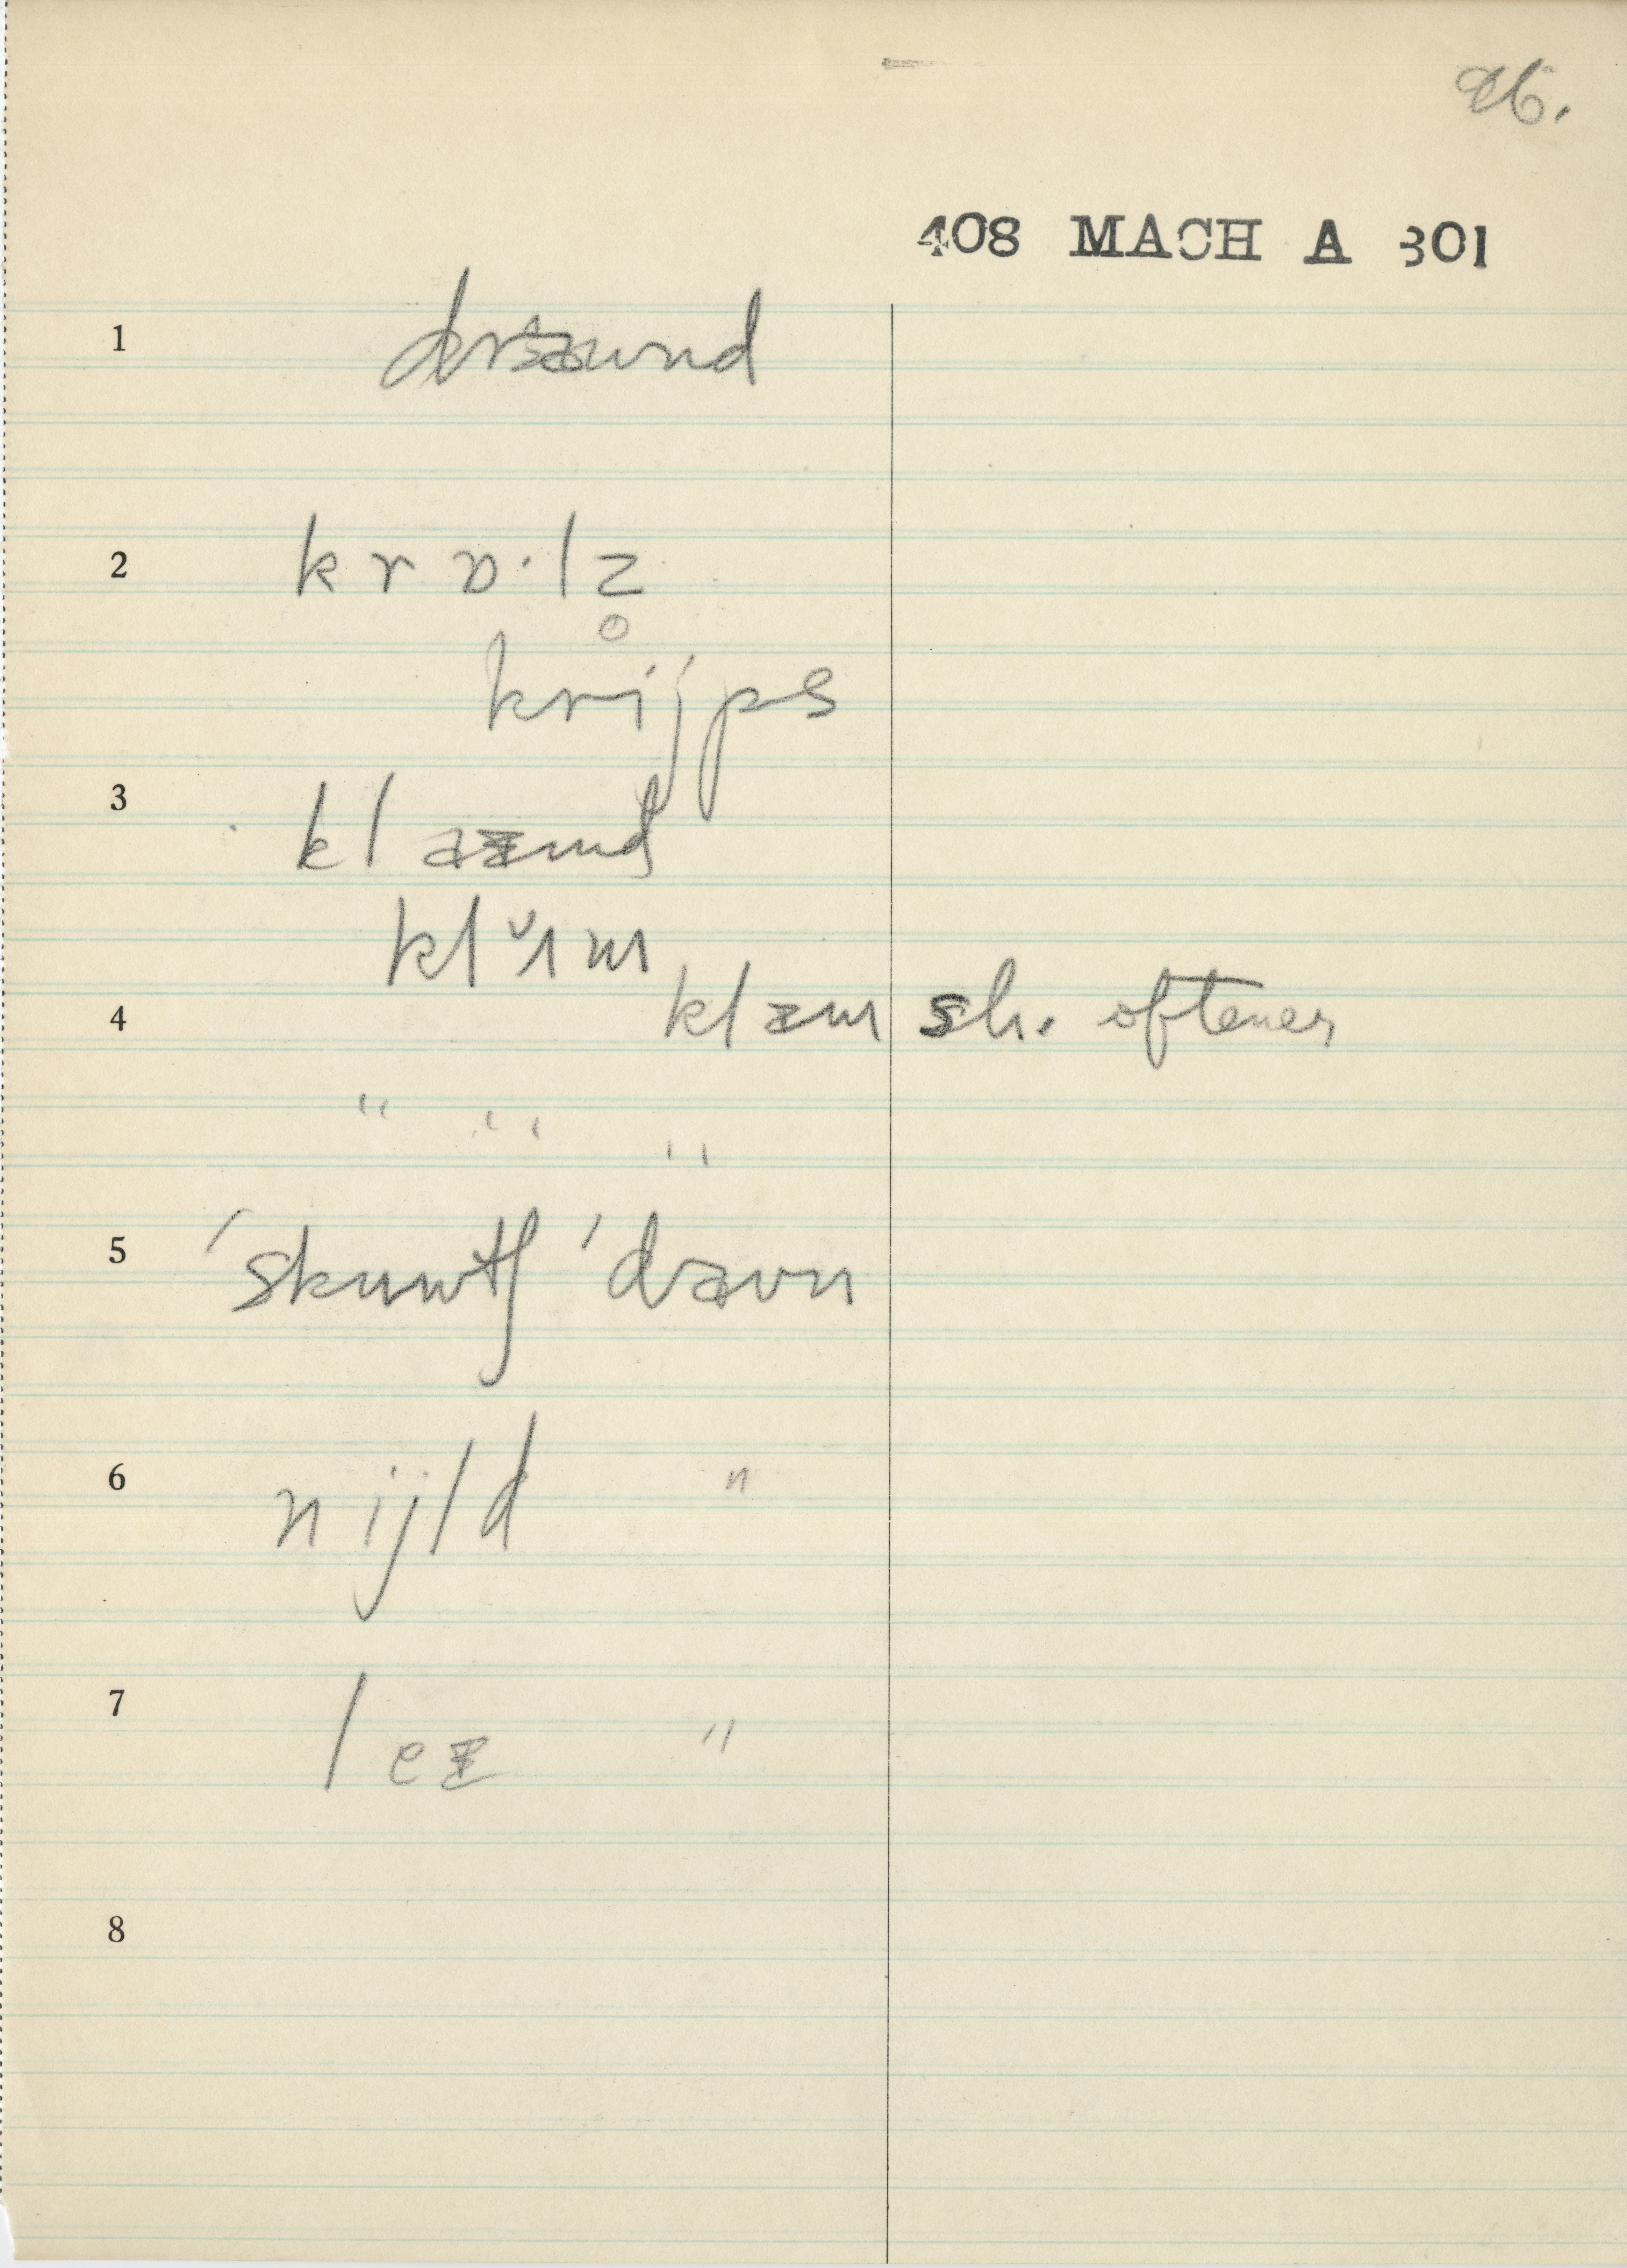 96.
408 MACH A 301
1 dræwnd
2 krɒ·lz̥
krijps
3 klæmd
klʌ̆m
4 klæm sh. oftener
" " "
5 ˈskuwtʃ ˈdæʊn
6 nijld "
7 lez "
8